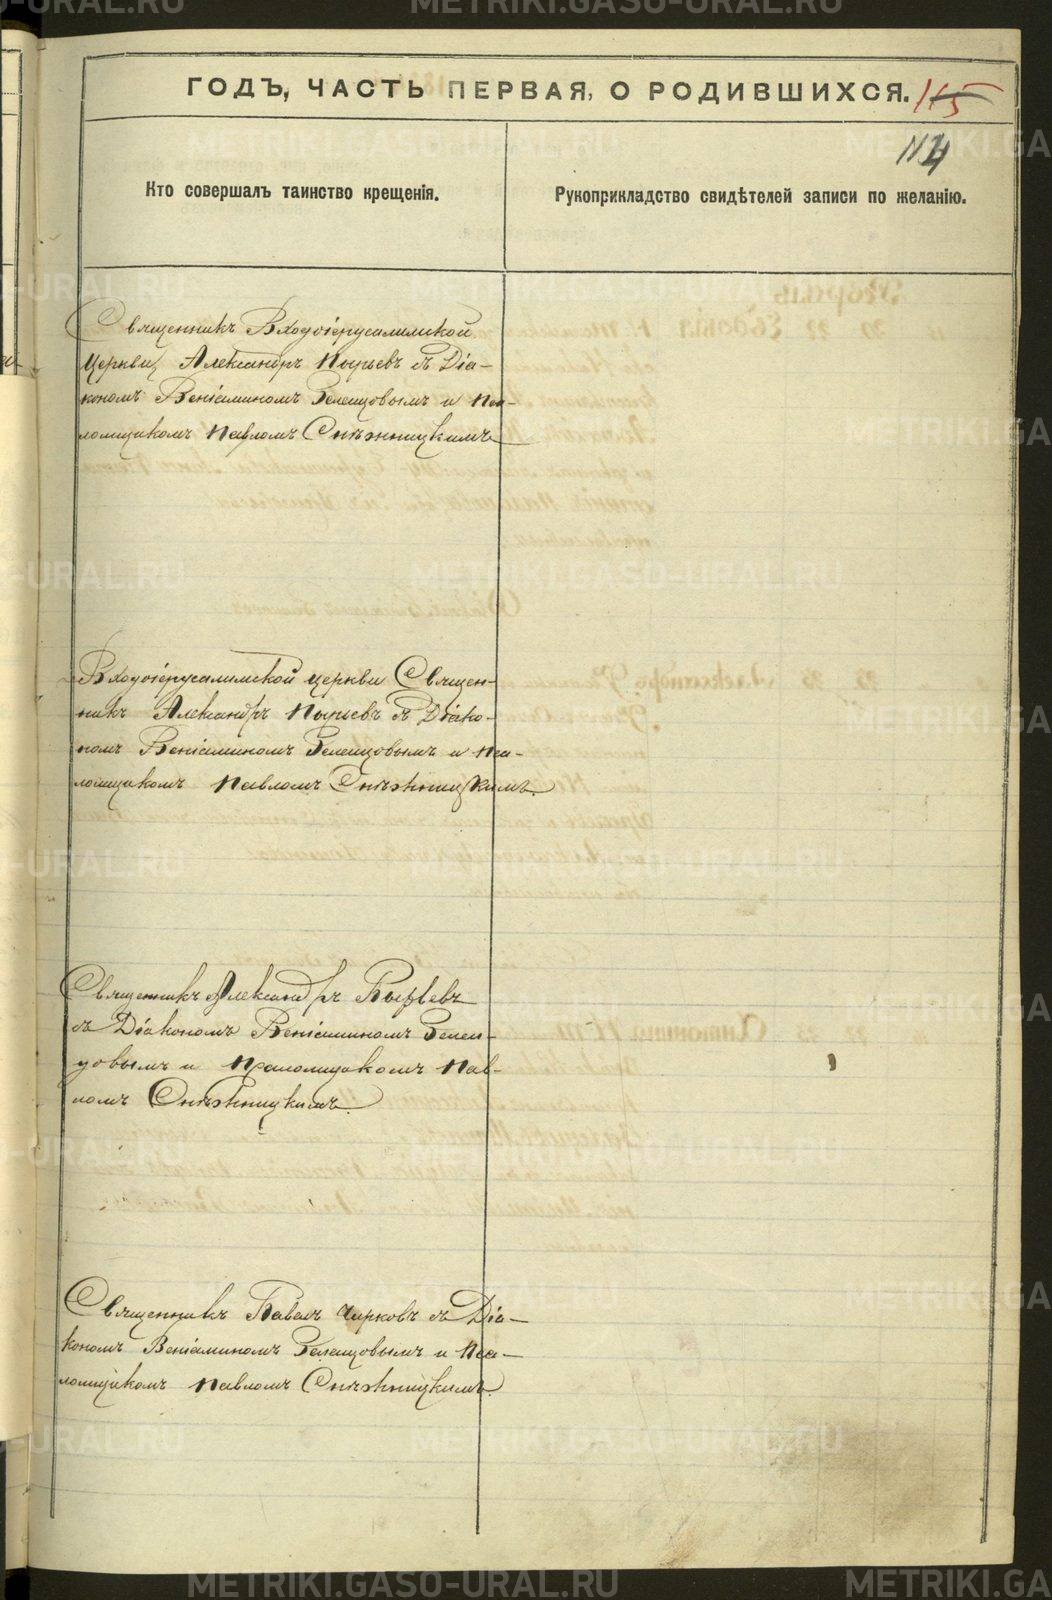 ГОДЪ, ЧАСТЬ ПЕРВАЯ, О РОДИВШИХСЯ.
115
114
Кто совершалъ таинство крещенія.
Рукоприкладство свидѣтелей записи по желанію.
Священникъ Входоіерусалимской
Церкви, Александръ Пырьевъ съ Діа-
кономъ Веніаминомъ Белецовымъ и Пса-
ломщикомъ Павломъ Снѣжницкимъ
Входоіерусалимской церкви Священ-
никъ Александръ Пырьевъ съ Діако-
номъ Веніаминомъ Белецовымъ и Пса-
ломщикомъ Павломъ Снѣжницкимъ.
Священникъ Александръ Пырьевъ
съ Діакономъ Веніаминомъ Белец-
овымъ и Псаломщикомъ Пав-
ломъ Снѣжницкимъ.
Священникъ Павелъ Чирковъ съ Діа-
кономъ Веніаминомъ Белецовымъ и Пса-
ломщикомъ Павломъ Снѣжницкимъ.
METRIKI.GASO-URAL.RU